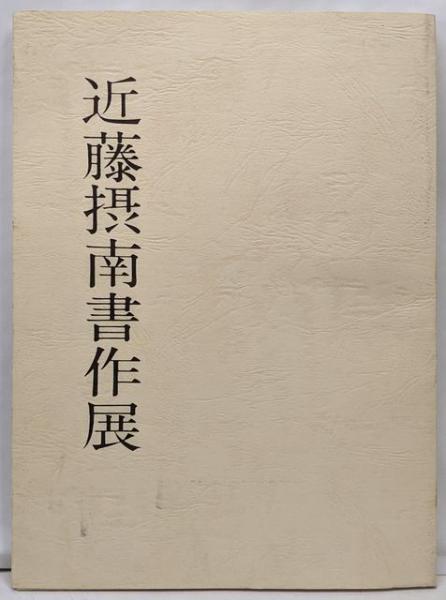 近藤摂南書作展